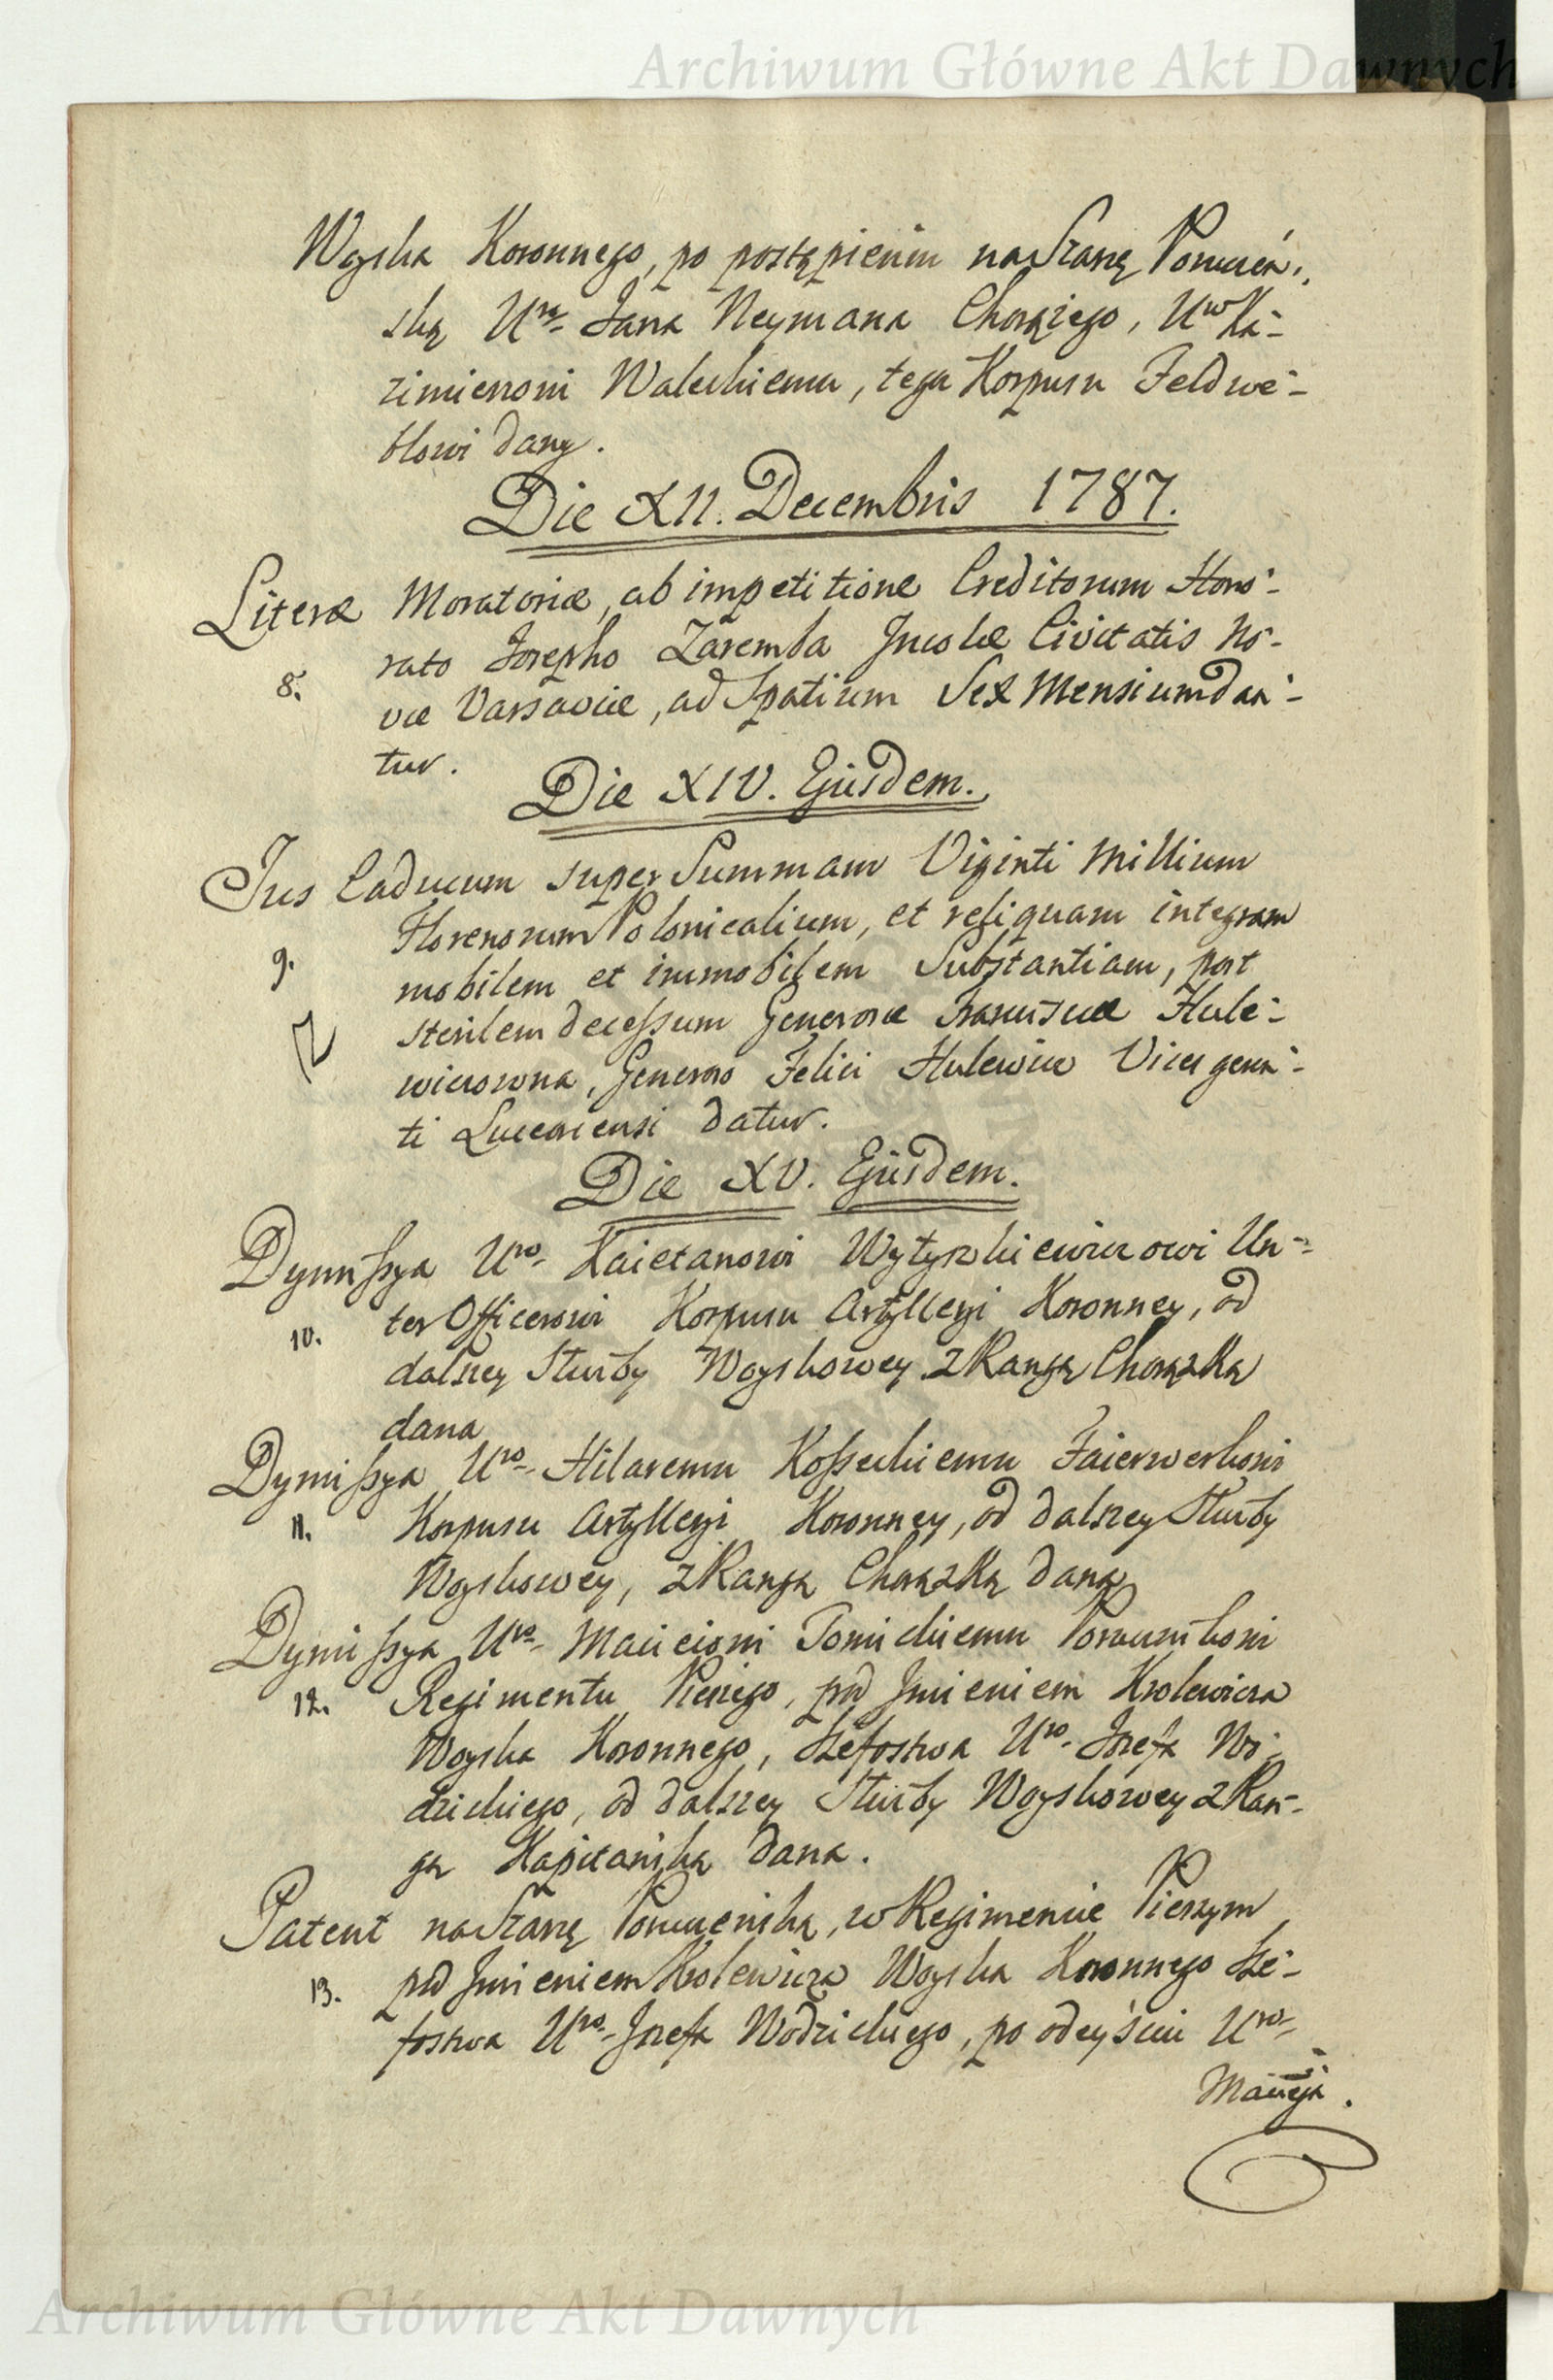 Archiwum Główne Akt Dawnych
Woyska Koronnego, po postąpieniu na Szarżę Porucz-
ską Uro- Jana Neymana Chorążego, Uro Ka-
zimierzowi Waleckiemu, tego Korpusu Feldwe-
blowi dany.
Die XII. Decembris 1787.
Literæ Moratoriæ, ab impetitione Creditorum Hono-
8. rato Josepho Zaremba Incolæ Civitatis No-
væ Varsaviæ, ad Spatium Sex Mensium dan-
tur.
Die XIV. Ejusdem.
Jus Caducum super Summam Viginti Millium
Florenorum Polonicalium, et reliquam integram
9. mobilem et immobilem Substantiam, post
sterilem decessum Generosæ Franciscæ Hule-
wiczowna, Generoso Felici Hulewicz Vicesgeren-
ti Luceoriensi datur.
Die XV. Ejusdem.
Dymissya Uro- Kaietanowi Wytyszkiewiczowi Un-
10. ter Officerowi Korpusu Artylleryi Koronney, od
dalszey Służby Woyskowey z Rangą Chorążką
dana
Dymissya Uro- Hilaremu Kosseckiemu Faierwerkowi
11. Korpusu Artylleryi Koronney, od dalszey Służby
Woyskowey, z Rangą Chorążką dana
Dymissya Uro- Macieiowi Tomickiemu Porucznikowi
12. Regimentu Pieszego, pod Imieniem Krolewicza
Woyska Koronnego, Szefostwa Uro- Jozefa Wo-
dzickiego, od dalszey Służby Woyskowey z Ran-
gą Kapitańską dana.
Patent na Szarżę Poruczniską, w Regimencie Pieszym
13. pod Imieniem Krolewicza Woyska Koronnego Sze-
fostwa Uro- Jozefa Wodzickiego, po odeyściu Uro-
Macieja.
Archiwum Główne Akt Dawnych